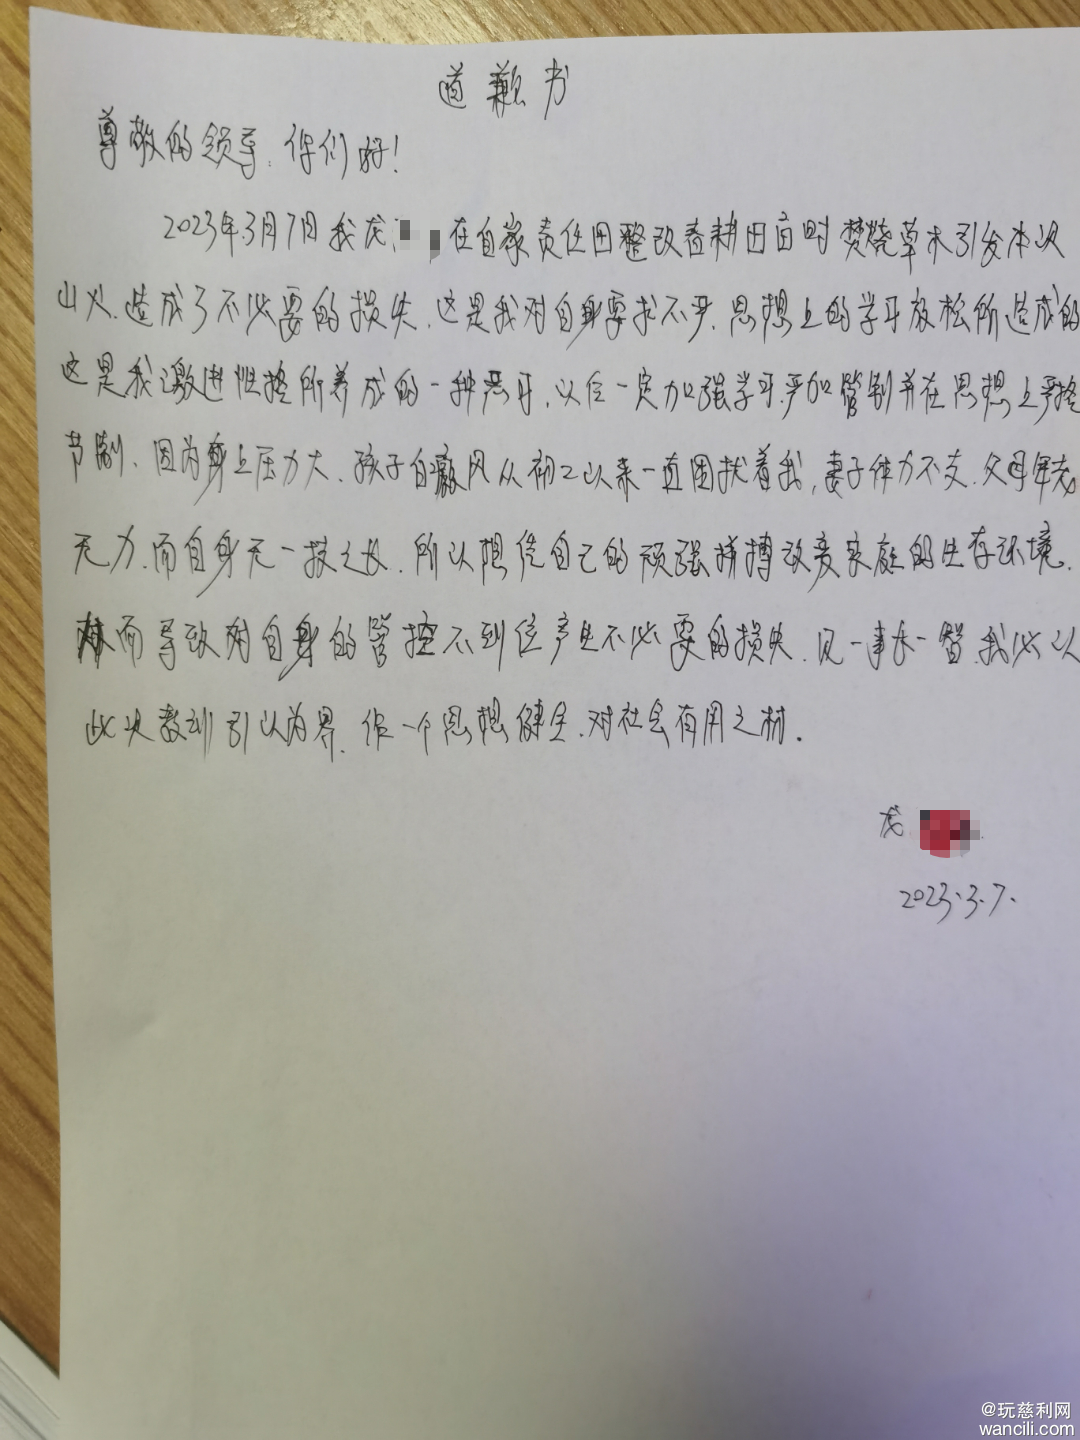 道歉书
尊敬的领导:你们好!
2023年3月7日我龙 在自家责任田整改春耕田亩时焚烧草木引发本次
山火.造成了不必要的损失.这是我对自身要求不严.思想上的学习放松所造成的
这是我激进性格所养成的一种恶习.以后一定加强学习.严加管制并在思想上严控
节制、因为身上压力大.孩子白癜风从初二以来一直困扰着我,妻子体力不支.父母年老
无力.而自身无一技之长.所以想凭自己的顽强拼搏改变家庭的生存环境.
从而导致对自身的管控不到位产生不必要的损失.见一事长一智.我必以
此次教训引以为界.作一个思想健全.对社会有用之材.
龙.
2023.3.7.
@玩慈利网
wancili.com